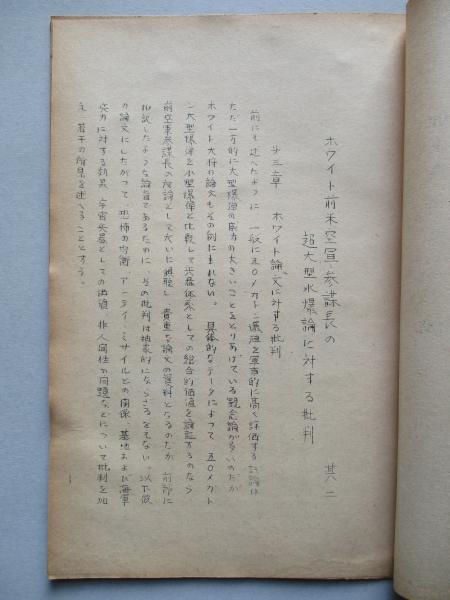 ホワイト前米空軍参謀長の
超大型水爆論に対する批判 其ノ二
第三章 ホワイト論文に対する批判
前にも述べたように、一般に五〇メガトン爆弾を軍事的に高く評価する
ただ一方的に大型爆弾の威力の大きいことをとりあげている観念論が多いのだが
ホワイト大将の論文もその例にもれない。具体的なデータによって、五〇メガト
ン大型爆弾を小型爆弾と比較して兵器体系としての総合的価値を論証するのなら
前空軍参謀長の所論として大いに傾聴し、貴重な論文の資料となるのだが、前節に
したような論旨であるために、その批判は抽象的にならざるをえない。以下彼
の論文にしたがって、恐怖の均衡、アンティ・ミサイルとの関係、基地および海軍
兵力に対する効果、宇宙兵器としての価値、非人間性の問題などについて批判を加
え、若干の所見を述べることとする。